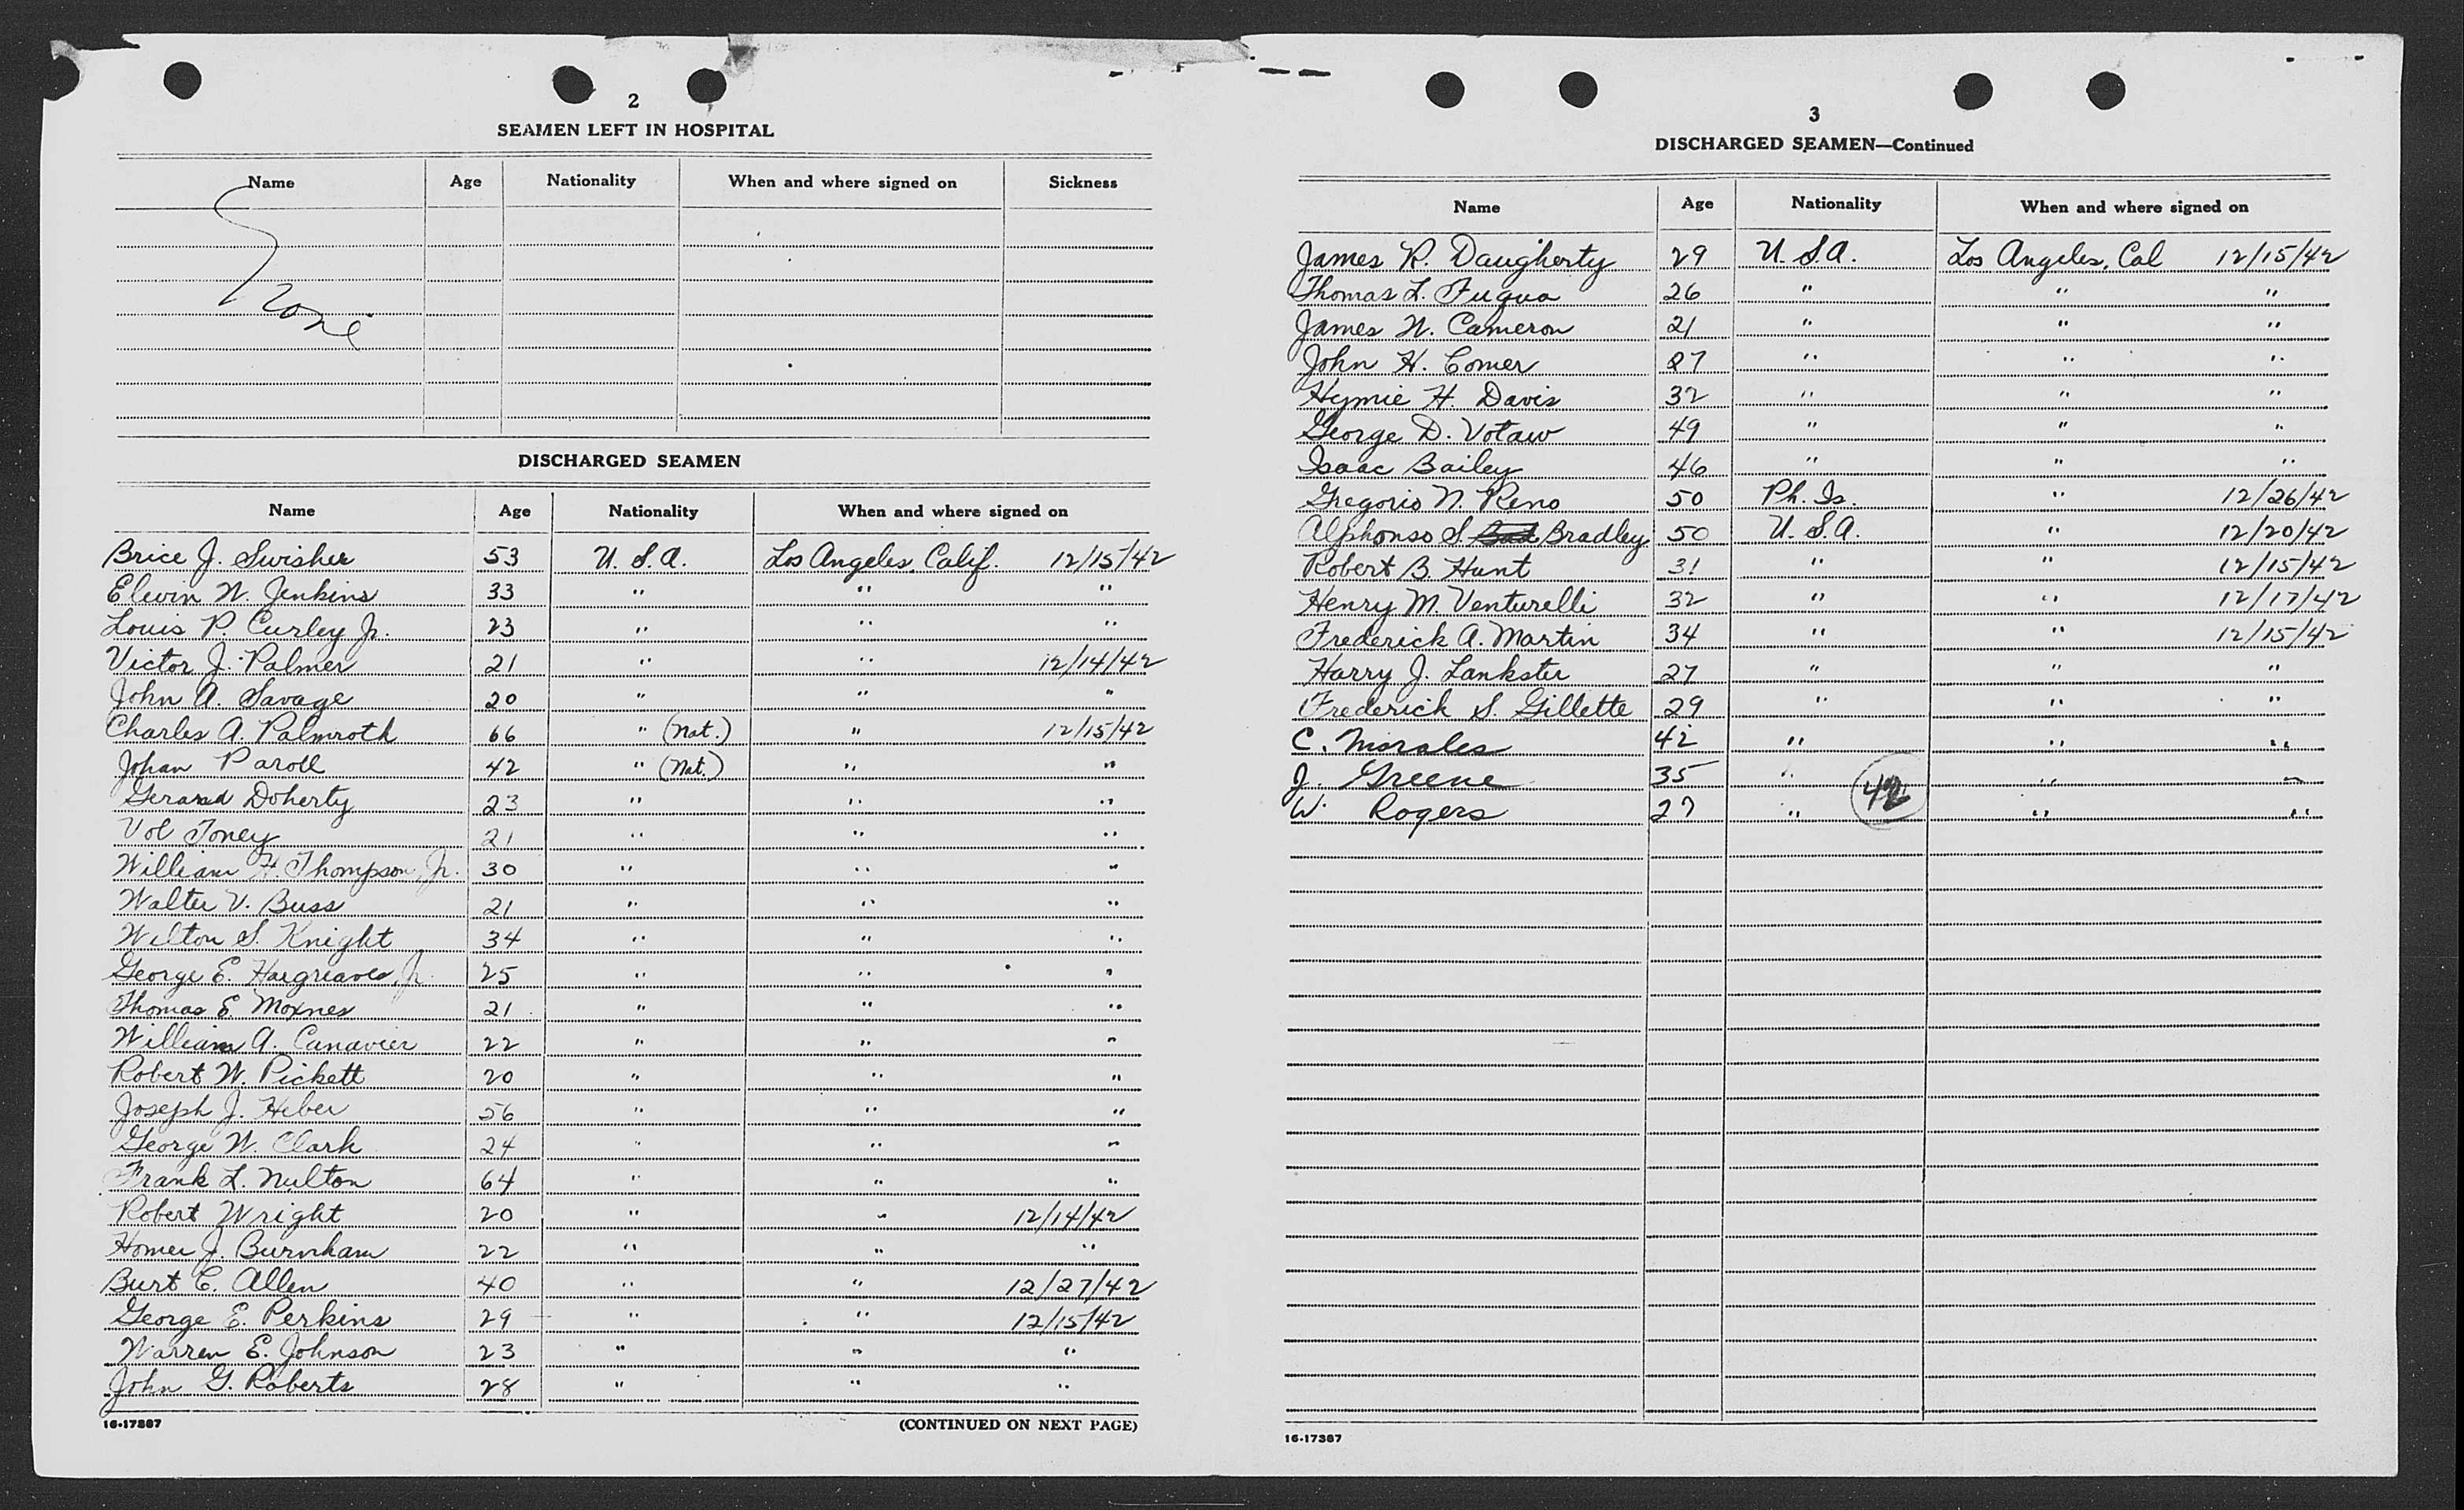 2
SEAMEN LEFT IN HOSPITAL
Name Age Nationality When and where signed on Sickness
None
DISCHARGED SEAMEN
Name Age Nationality When and where signed on
Brice J. Swisher 53 U.S.A. Los Angeles, Calif. 12/15/42
Elwin W. Jenkins 33 " " "
Louis P. Curley Jr. 23 " " "
Victor J. Palmer 21 " " 12/14/42
John A. Savage 20 " " "
Charles A. Palmroth 66 " (Nat.) " 12/15/42
Johan Paroll 42 " (Nat.) " "
Gerard Doherty 23 " " "
Vol Toney 21 " " "
William H. Thompson, Jr. 30 " " "
Walter V. Buss 21 " " "
Wilton S. Knight 34 " " "
George E. Hargreaves, Jr. 25 " " "
Thomas E. Moxnes 21 " " "
William A. Canavier 22 " " "
Robert W. Pickett 20 " " "
Joseph J. Hiber 56 " " "
George W. Clark 24 " " "
Frank L. Nulton 64 " " "
Robert Wright 20 " " 12/14/42
Homer J. Burnham 22 " " "
Burt C. Allen 40 " " 12/27/42
George E. Perkins 29 " " 12/15/42
Warren E. Johnson 23 " " "
John G. Roberts 28 " " "
16-17387 (CONTINUED ON NEXT PAGE)
3
DISCHARGED SEAMEN—Continued
Name Age Nationality When and where signed on
James R. Daugherty 29 U.S.A. Los Angeles, Cal 12/15/42
Thomas L. Fuqua 26 " " "
James W. Cameron 21 " " "
John H. Comer 27 " " "
Hymie H. Davis 32 " " "
George D. Votaw 49 " " "
Isaac Bailey 46 " " "
Gregorio N. Reno 50 Ph. Is. " 12/26/42
Alphonso S. Bradley 50 U.S.A. " 12/20/42
Robert B. Hunt 31 " " 12/15/42
Henry M. Venturelli 32 " " 12/17/42
Frederick A. Martin 34 " " 12/15/42
Harry J. Lankster 27 " " "
Frederick S. Gillette 29 " " "
C. Morales 42 " " "
J. Greene 35 " " "
W. Rogers 27 " 42 " "
16-17387